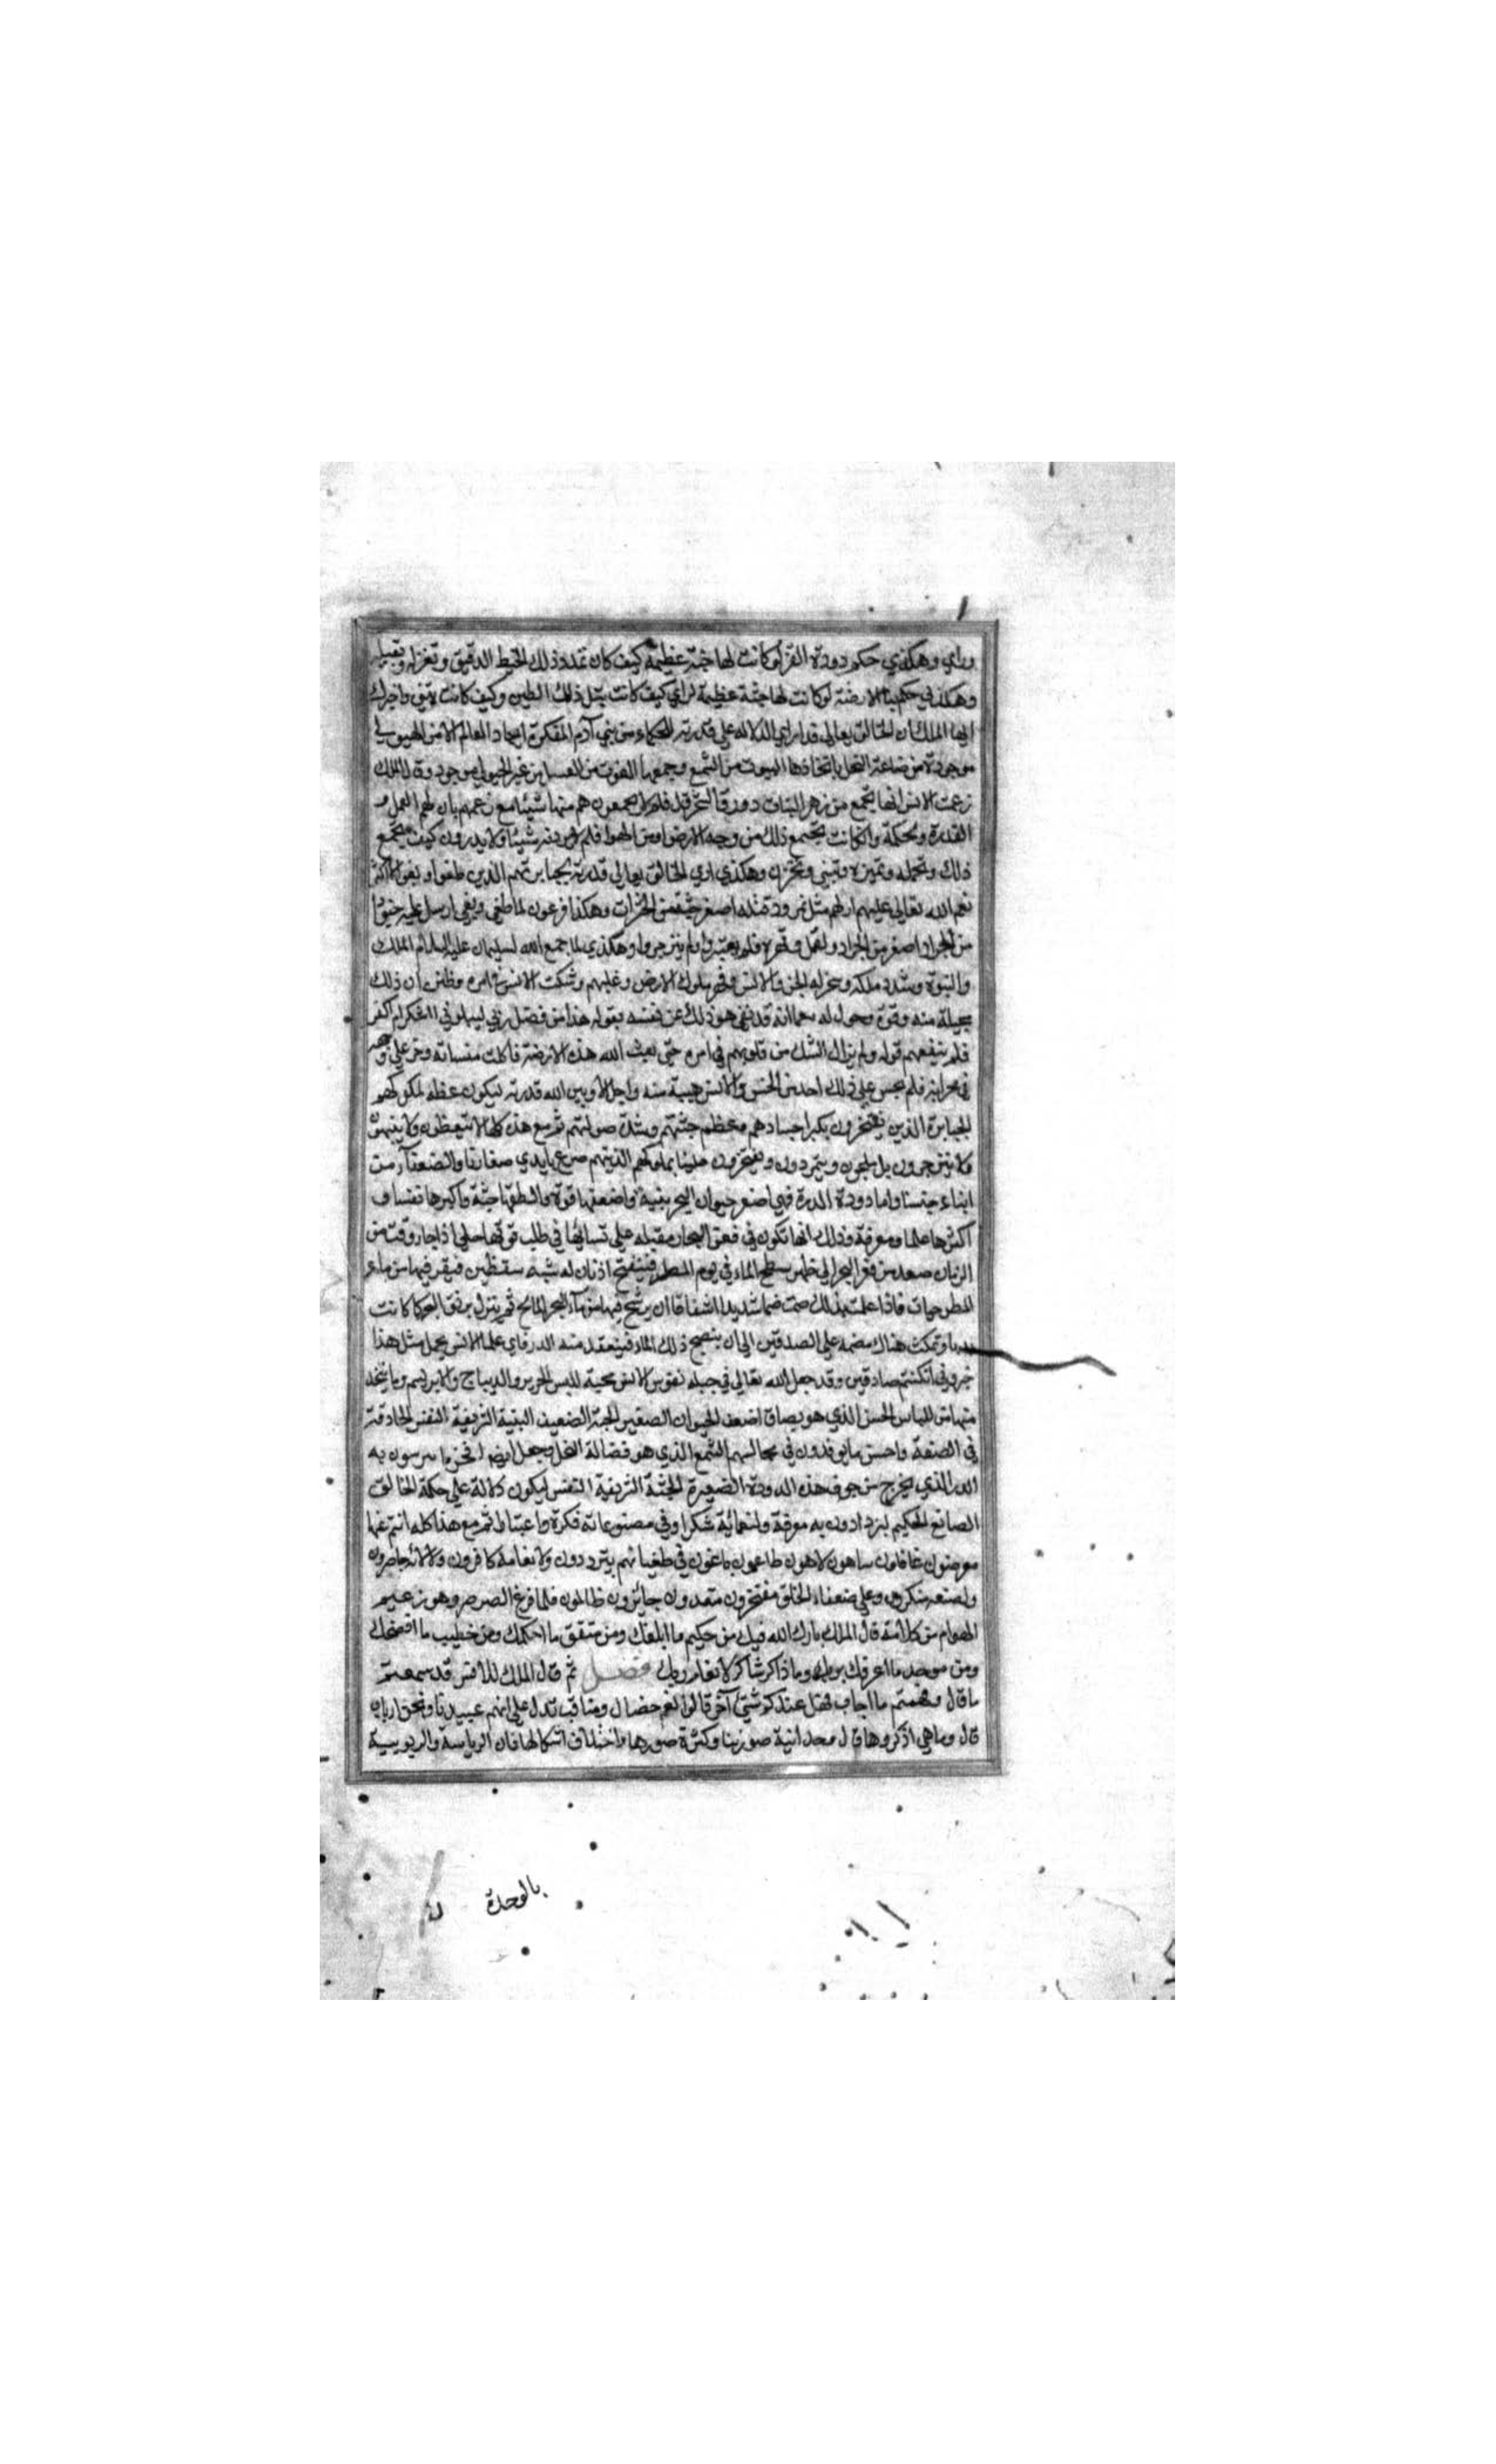 وراي وهكذي حكم دودة القز لو كانت لها جثة عظيمة كيف كان تمدد ذلك الخيط الدقيق وتغزله
وهكذي حكم بناء الارضة لو كانت لها جثة عظيمة لراي كيف كانت تبتل ذلك الطين وكيف كانت تبني واخبرك
ايها الملك ان الخالق تعالي قد اري الدلاله علي قدرته للحكماء من بني آدم المفكرة ايجاد العالم لا من الهيولي
موجودة من صناعة النحل باتخاذها البيوت من الشمع وجمعها القوت من العسل من غير الهيولي موجود وقال الملك
زعمت الانس انها تجمع من زهر النبات دورق الشجر قل فلم لا يجمعون هم منها شيئا مع زعمهم بان لهم العمل و
القدرة والحكمة وان كانت تجتمع ذلك من وجه الارض او من الهوا فلم لا يرون منه شيئا ولا يدرون كيف تجمع
ذلك وتحمله وتميزه وتبني وتخزن وهكذي اري الخالق تعالي قدرته لجبابرتهم الذين طغوا وبغوا لما كثر
نعم الله تعالي عليهم مثل نمرود قتله اصغر من الحشرات وهكذا فرعون لما طغي وبغي ارسل عليه جنودا
من الجراد واصغر من الجراد والقمل وقهره فلم يعتبر ولم ينزجروا وهكذي لما جمع الله لسليمان عليه السلام الملك
والنبوة وشدد ملكه وسخر له الجن والانس وقهر ملوك الارض وغلبهم وشكت الانس في امره وظنت ان ذلك
بحيلة منه وقوة وحول له مع انه قد نفي هو ذلك عن نفسه بقوله هذا من فضل ربي ليبلوني ااشكر ام اكفر
فلم ينفعهم قوله ولم يزال الشك من قلوبهم في امره حتي بعث الله هذه الارضة فاكلت منساته وخر علي وجهه
في محرابه فلم يجسر علي ذلك احد من الجن والانس هيبة منه واجلالا وبين الله قدرته ليكون عظة لملوكهم
الجبابرة الذين يفتخرون بكبر اجسادهم وعظم جثتهم وشدة صولتهم ثم مع هذه كلها لا تتعظون ولا ينتهون
ولا ينزجرون بل يلجون ويتمردون ويفتخرون علينا بملوكهم الذينهم صرع بايدي صغارنا والضعفآء من
ابناء جنسنا واما دودة الدرة فهي اصغر حيوان البحر بنية واضعفها قوة والطفها جثة واكبرها نفسا و
اكثرها علما ومعرفة وذلك انها تكون في قعر البحار مقبله علي شانها في طلب قوتها حتي اذا جاء وقت من
الزمان صعد من قعر البحر الي ظهر سطح الماء في يوم المطر فينفتح اذنان له شبه سقطين فيقر فيها من ماء
المطر حبات فاذا علمت بذلك ضمت ضما شديدا اشفاقا ان يرشح فيها من ماء البحر المالح ثم ينزل برفق الي كما كانت
وتمكث هناك منضمة علي الصدفتين الي ان ينضج ذلك الماء فينعقد منه الدر فاي علماء الانس يعمل مثل هذا
خبروني ان كنتم صادقين وقد جعل الله تعالي في جبلة نفوس الانس محبة للبس الحرير والديباج والابريسم وما يتخذ
منها من اللباس الحسن الذي هو بصاق اضعف الحيوان الصغير الجثة الضعيف البنية الشريفة النفس الحاذقة
في الصنعة واحسن ما يوقدون في مجالسهم الشمع الذي هو فضالة النحل وجعل ايضا افخر ما يتزينون به
الدر الذي يخرج من جوف هذه الدودة الصغيرة الجثة الشريفة النفس ليكون دلالة علي حكمة الخالق
الصانع الحكيم ليزدادون به معرفة ولنعمائه شكرا وفي مصنوعاته فكرة واعتبارا ثم مع هذا كله انتم عنها
معرضون غافلون ساهون لاهون طاغون باغون في طغيانهم يترددون ولانعامه كافرون ولآلائه جاحدون
ولصنعه منكرون وعلي ضعفاء الخلق مفتخرون متعدون جايرون ظالمون فلما فرغ الصرصر وهو زعيم
الهوام من كلامه قال الملك بارك الله فيك من حكيم ما ابلغك ومن متقن ما احكمك ومن خطيب ما افصحك
ومن موحد ما اعرفك بربك وما ذاكر شاكر لانعام ربك فصل ثم قال الملك للانس قد سمعتم
ما قال وفهمتم ما اجاب فهل عندكم شئ آخر قالوا نعم خصال ومناقب تدل علي انهم عبيدنا ونحن ارباب
قال وما هي اذكروها قال وحدانية صورتنا وكثرة صورها واختلاف اشكالها فان الرياسة والربوبية
بالوحدة